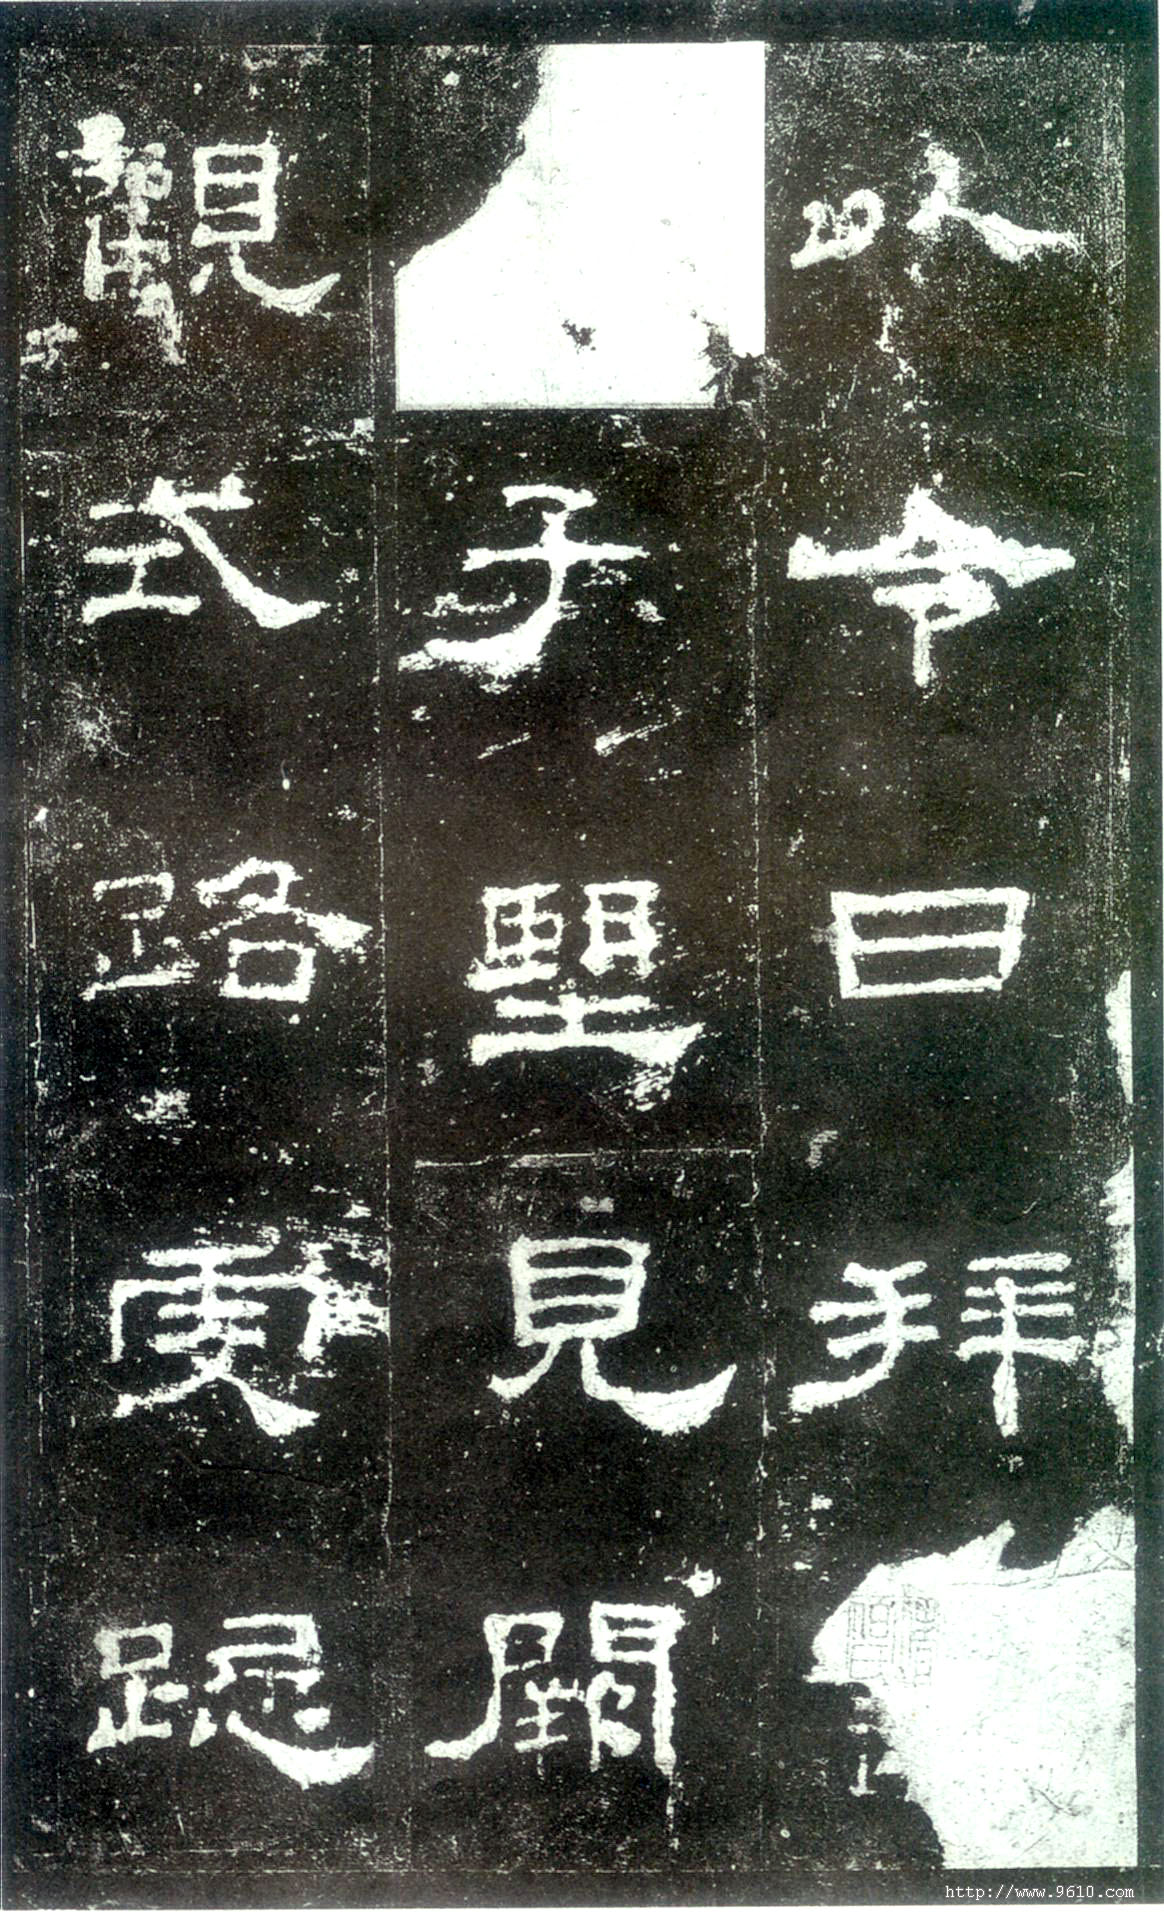 以令日拜
子望見闕
觀式路虔跽
http://www.9610.com